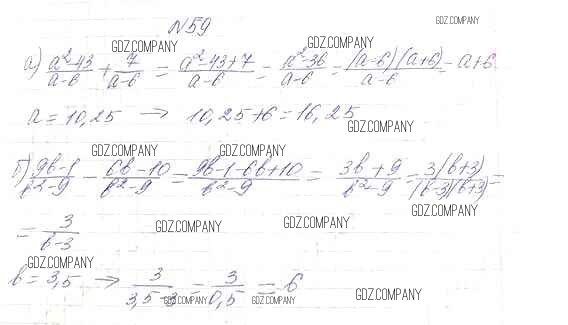 №59
GDZ.COMPANY
GDZ.COMPANY
GDZ.COMPANY
а) (a²-43)/(a-6) + 7/(a-6) = (a²-43+7)/(a-6) = (a²-36)/(a-6) = (a-6)(a+6)/(a-6) = a+6
a = 10,25 → 10,25+6 = 16,25
GDZ.COMPANY
GDZ.COMPANY
GDZ.COMPANY
б) (9b-1)/(b²-9) - (6b-10)/(b²-9) = (9b-1-6b+10)/(b²-9) = (3b+9)/(b²-9) = 3(b+3)/(b-3)(b+3) =
GDZ.COMPANY
= 3/(b-3)
GDZ.COMPANY
GDZ.COMPANY
GDZ.COMPANY
b = 3,5 → 3/(3,5-3) = 3/0,5 = 6
GDZ.COMPANY
GDZ.COMPANY
GDZ.COMPANY